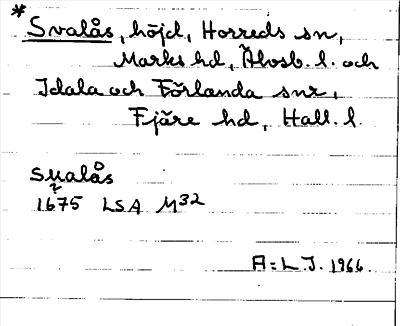 * Svalås, höjd, Horreds sn,
Marks hd, Älvsb. l. och
Idala och Förlanda snr,
Fjäre hd, Hall. l.
Sualås
1675 LSA M32
A: L.J. 1966.